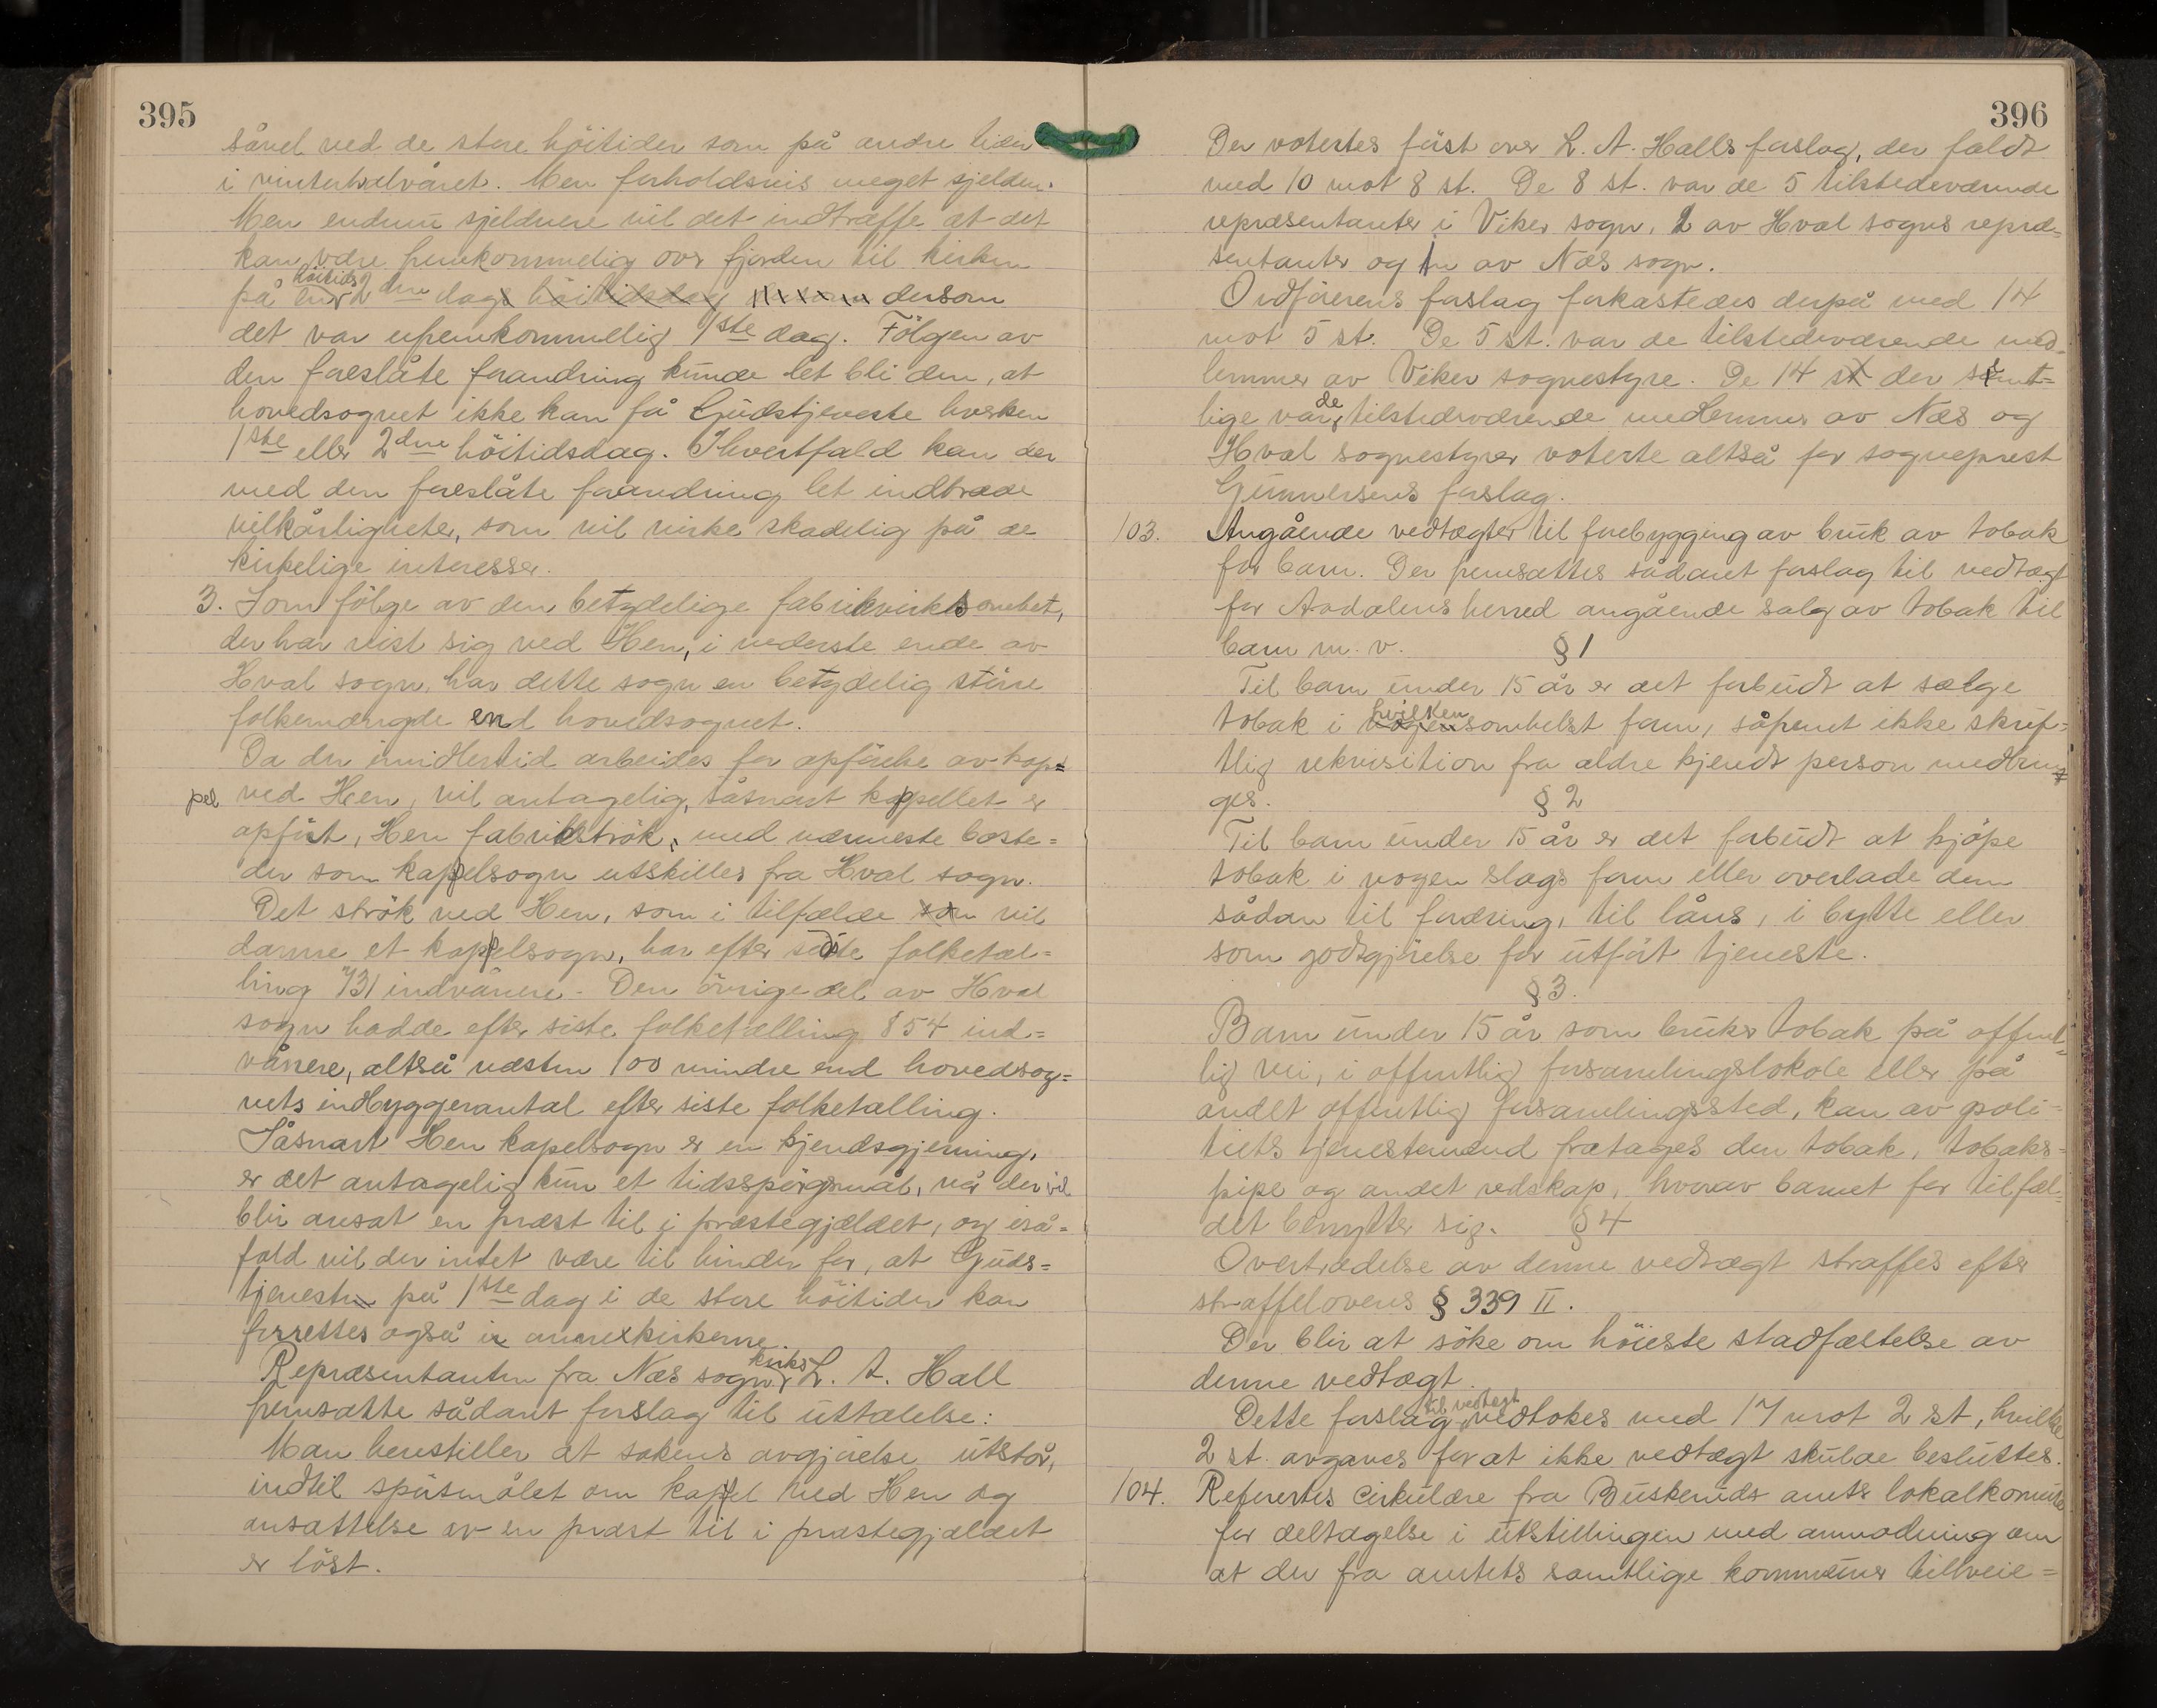 395
såvel ved de store höitider som på andre tider
i vinterhalvåret. Men forholdsvis meget sjelden.
Men endnu sjeldnere vil det indtræffe at det
kan være fremkommelig over fjorden til kirken
höitids
på en 2den dags höitidsdag dersom
det var ufremkommelig 1ste dag. Fölgen av
den foreslåte forandring kunde let bli den, at
hovedsognet ikke kan få Gudstjeneste hverken
1ste eller 2den höitidsdag. Ihvertfald kan der
med den foreslåte forandring let indtræde
vilkårligheter, som vil virke skadelig på de
kirkelige interesser.
3. Som fölge av den betydelige fabrikvirksomhet,
der har reist sig ved Hen, i nederste ende av
Hval sogn, har dette sogn en betydelig större
folkemængde end hovedsognet.
Da der imidlertid arbeides for opförelse av kap=
pel ved Hen, vil antagelig, såsnart kapellet er
opfört, Hen fabrikströk, med nærmeste boste=
der som kapelsogn utskilles fra Hval sogn.
Det strök ved Hen, som i tilfælde som vil
danne et kapelsogn, har efter siste folketæl=
ling 731 indvånere. Den övrige del av Hval
sogn hadde efter siste folketælling 854 ind=
vånere, altså næsten 100 mindre end hovedsog=
nets indbyggerantal efter siste folketælling.
Såsnart Hen kapelsogn er en kjendsgjerning,
er det antagelig kun et tidsspörgsmål, når der vil
bli ansat en præst til i præstegjældet, og iså=
fald vil der intet være til hinder for, at Guds=
tjenesten på 1ste dag i de store höitider kan
forrettes også i annexkirkerne.
kirks
Repræsentanten fra Næs sogn L. A. Hall
fremsatte sådant forslag til uttalelse:
Man henstiller at sakens avgjörelse utstår,
indtil spörsmålet om kapel ved Hen og
ansættelse av en præst til i præstegjældet
er löst.
396
Der votertes först over L. A. Halls forslag, der faldt
med 10 mot 8 st. De 8 st. var de 5 tilstedeværende
repræsentanter i Viker sogn, 2 av Hval sogns repræ=
sentanter og 1 av Næs sogn.
Ordförerens forslag forkastedes derpå med 14
mot 5 st. De 5 st. var de tilstedeværende med=
lemmer av Viker sognestyre. De 14 st der samt=
lige var de tilstedeværende medlemmer av Næs og
Hval sognestyrer voterte altså for sogneprest
Gunnersens forslag.
103. Angående vedtægter til forebygging av bruk av tobak
for barn. Der fremsattes sådant forslag til vedtægt
for Aadalens herred angående salg av tobak til
barn m. v. § 1
Til barn under 15 år er det forbudt at sælge
hvilken
tobak i nogensomhelst form, såfremt ikke skrif=
tlig rekvisition fra ældre kjendt person medbrin=
ges. § 2
Til barn under 15 år er det forbudt at kjöpe
tobak i nogen slags form eller overlade dem
sådan til foræring, til låns, i bytte eller
som godtgjörelse for utfört tjeneste.
§ 3.
Barn under 15 år som bruker tobak på offent=
lig vei, i offentlig forsamlingslokale eller på
andet offentlig forsamlingssted, kan av poli=
tiets tjenestemænd fratages den tobak, tobaks=
pipe og andet redskap, hvorav barnet for tilfæl=
det benytter sig. § 4
Overtrædelse av denne vedtægt straffes efter
straffelovens § 339 II.
Der blir at söke om höieste stadfæstelse av
denne vedtægt.
til vedtægt
Dette forslag vedtokes med 17 mot 2 st, hvilke
2 st. avgaves for at ikke vedtægt skulde besluttes.
104. Refererte cirkulære fra Buskeruds amts lokalkomite
for deltagelse i utstillingen med anmodning om
at der fra amtets samtlige kommuner tilveie=